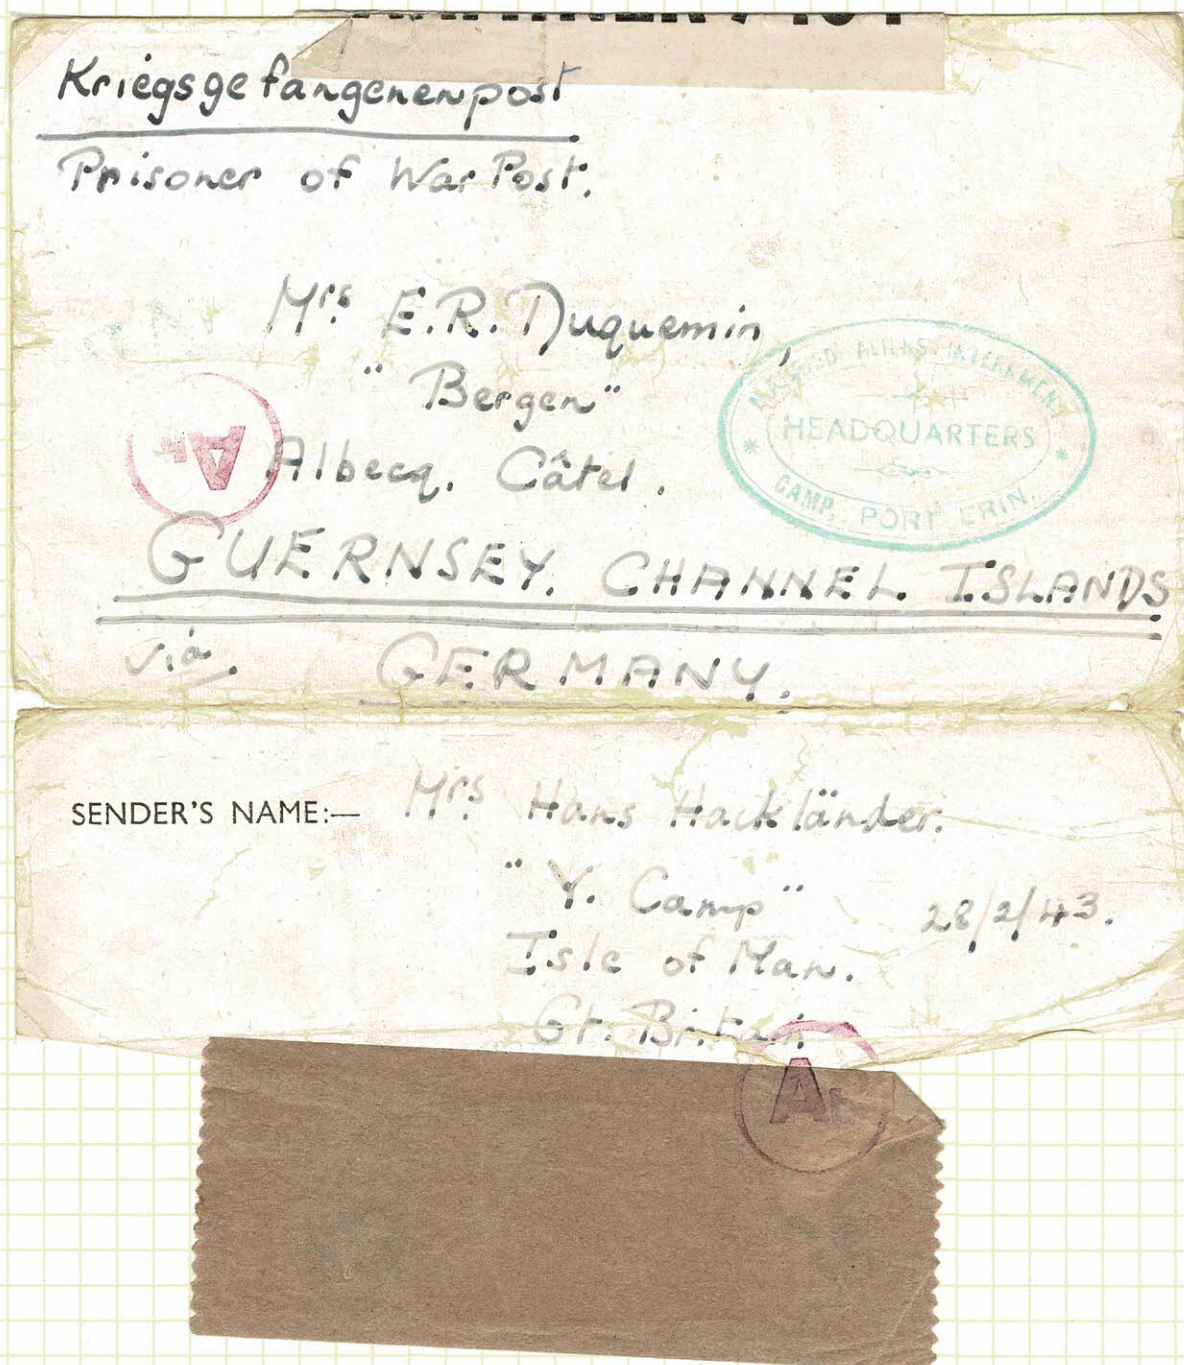 Kriegsgefangenenpost
Prisoner of War Post.
Mrs. E.R. Duquemin,
"Bergen"
Albecq. Câtel.
GUERNSEY. CHANNEL ISLANDS
via. GERMANY.
MARRIED ALIENS INTERNMENT
HEADQUARTERS
CAMP, PORT ERIN.
A
SENDER'S NAME:— Mrs Hans Hackländer.
"Y. Camp"
28/2/43.
Isle of Man.
Gt. Britain
A